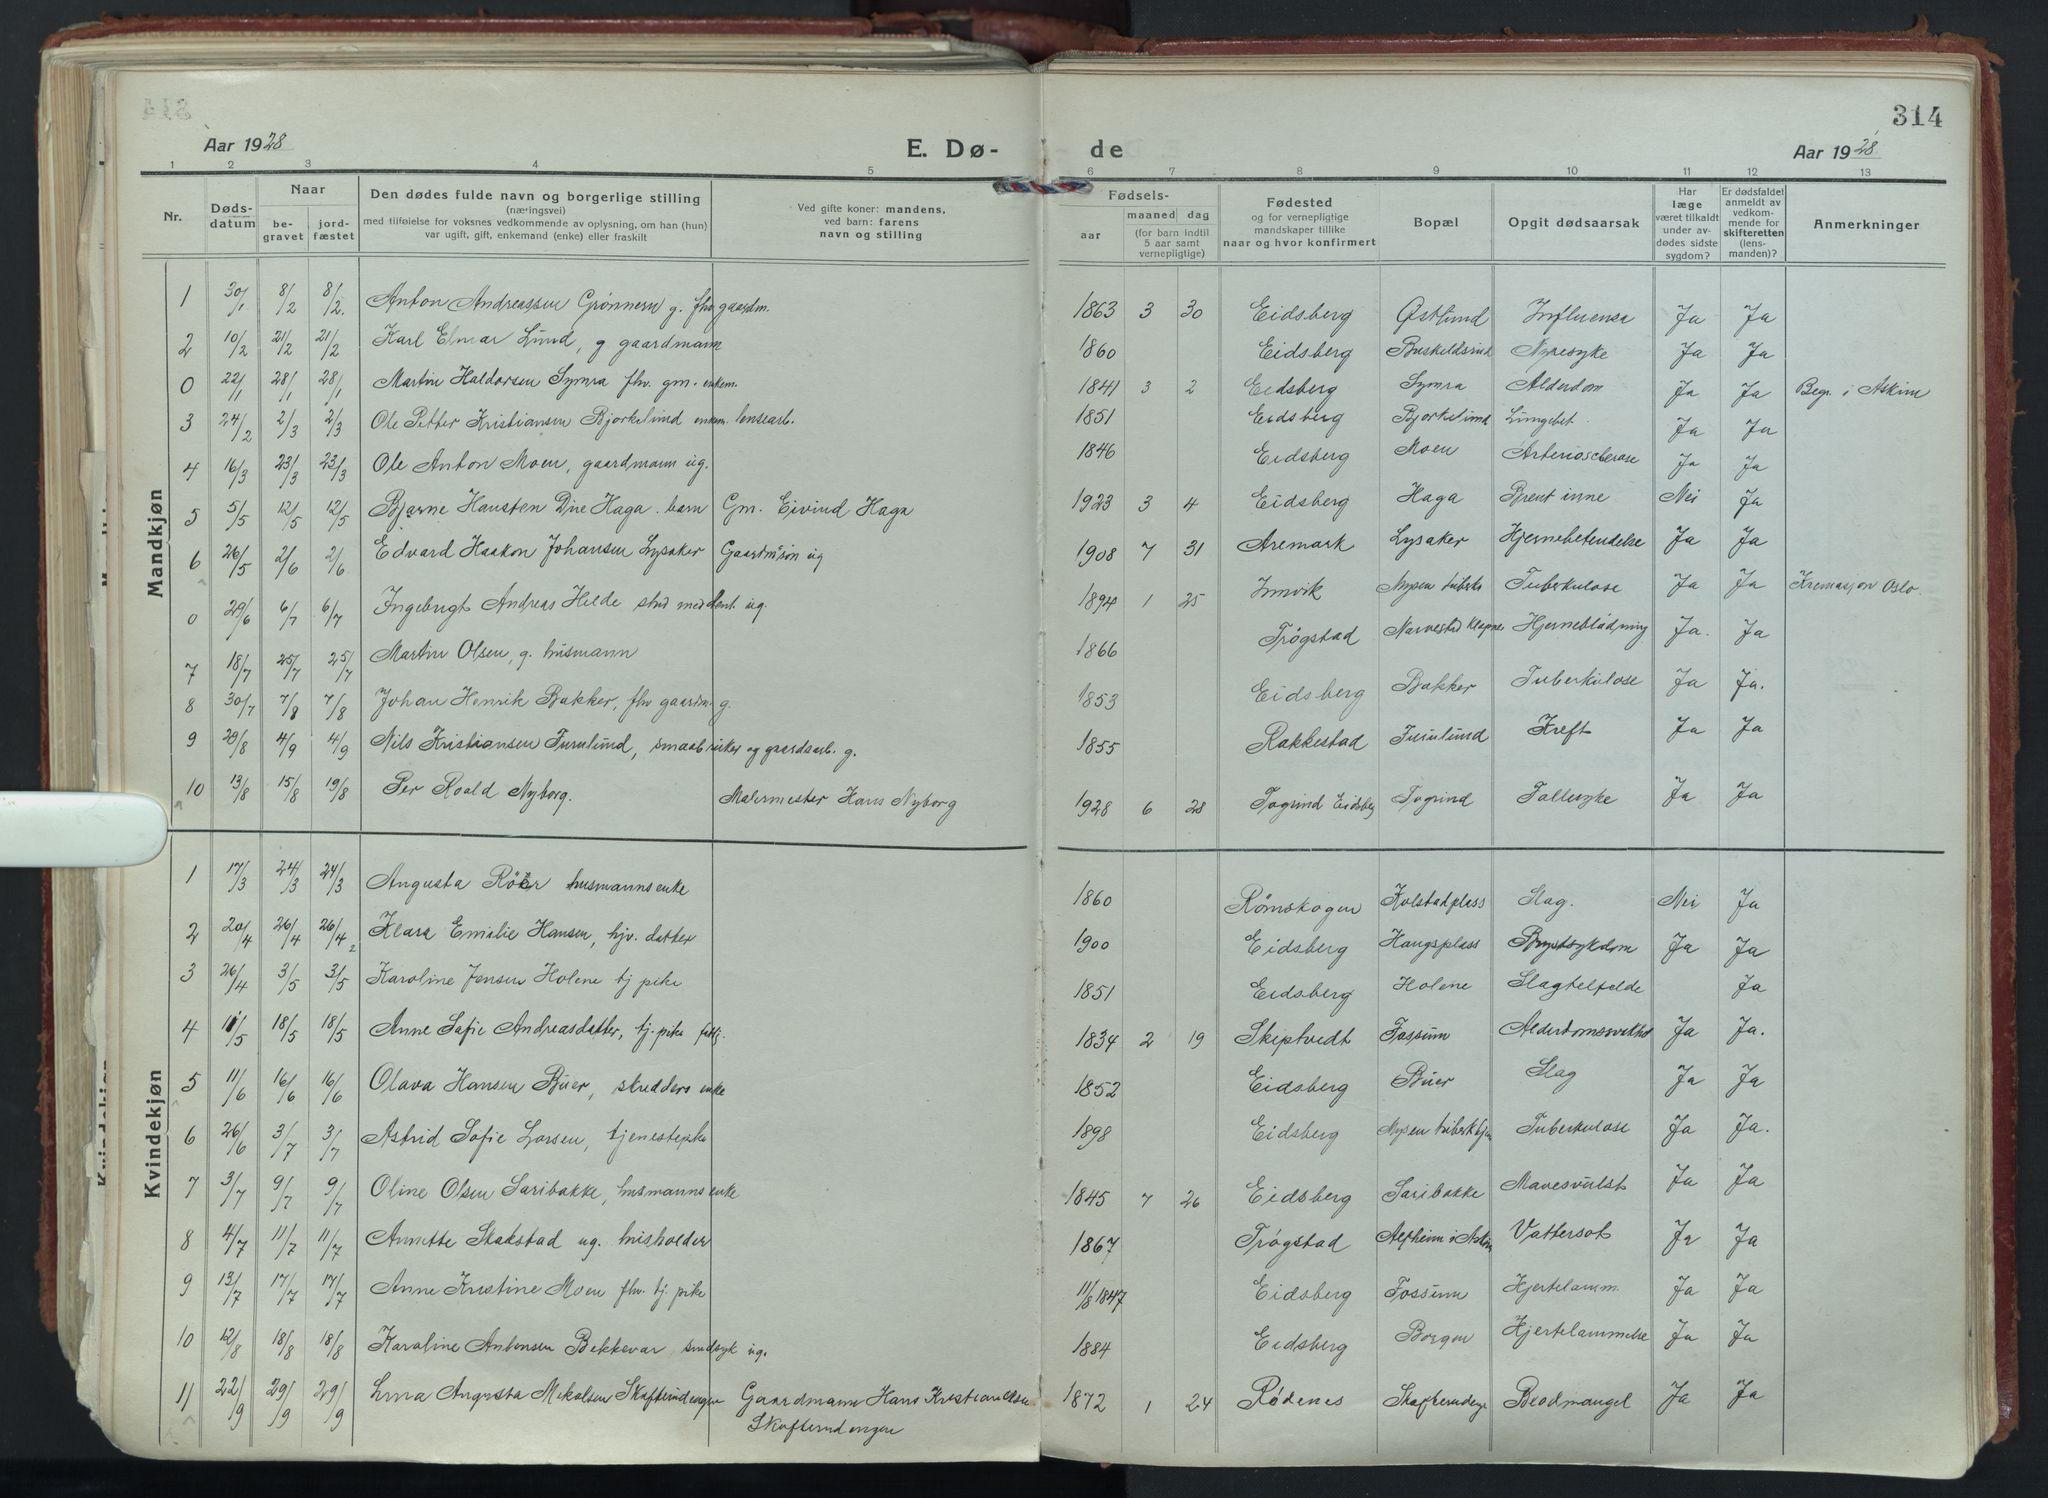 314
Aar 1928
E. Dø-
de
Aar 1928
1 2 3 4 5 6 7 8 9 10 11 12 13
Nr.
Døds-
datum
Naar
be-
gravet
jord-
fæstet
Den dødes fulde navn og borgerlige stilling
(næringsvei)
med tilføielse for voksnes vedkommende av oplysning, om han (hun)
var ugift, gift, enkemand (enke) eller fraskilt
Ved gifte koner: mandens,
ved barn: farens
navn og stilling
Fødsels-
aar
maaned
dag
(for barn indtil
5 aar samt
vernepligtige)
Fødested
og for vernepligtige
mandskaper tillike
naar og hvor konfirmert
Bopæl
Opgit dødsaarsak
Har
læge
været tilkaldt
under av-
dødes sidste
sygdom?
Er dødsfaldet
anmeldt av
vedkom-
mende for
skifteretten
(lens-
manden)?
Anmerkninger
Mandkjøn
1 30/1 8/2 8/2. Anton Andreassen Grønnern g. fhv gaardm. 1863 3 30 Eidsberg Østlund Influensa Ja Ja
2 10/2 21/2 21/2 Karl Elmar Lund, g gaardmann 1860 Eidsberg Nyresyke Ja Ja
0 22/1 28/1 28/1 Martin Haldorsen Symra fhv. gm. enkem. 1841 3 2 Eidsberg Symra Alderdom Ja Ja Begr. i Askim
3 24/2 2/3 2/3 Ole Petter Kristiansen Bjørkelund enkem. lensearb. 1851 Eidsberg Bjørkelund Lungebet. Ja Ja
4 16/3 23/3 23/3 Ole Anton Moen, gaardmann ug. 1846 Eidsberg Moen Arterioscherose Ja Ja
5 5/5 12/5 12/5 Bjarne Hansten Dire Haga. barn Gm. Eivind Haga 1923 3 4 Eidsberg Haga Brent inne Nei Ja
6 26/5 2/6 2/6 Edvard Haakon Johansen Lysaker Gaardm.søn ug 1908 7 31 Aremark Lysaker Hjernebetendelse Ja Ja
0 29/6 6/7 6/7 Ingebrigt Andreas Helde stud med dent. ug. 1894 1 25 Innvik Mysen tuberk. Tuberkulose Ja Ja Kremasjon Oslo.
7 18/7 25/7 25/7 Martin Olsen, g. husmann 1866 Trøgstad Narvestad Hjerneblødning Ja. Ja
8 30/7 7/8 7/8 Johan Henrik Bakker, fhv gaardm. g. 1853 Eidsberg Bakker Tuberkulose Ja Ja.
9 29/8 4/9 4/9 Nils Kristiansen Furulund, smaabruker og gaardsarb. g. 1855 Rakkestad Furulund Kreft Ja Ja
10 13/8 15/8 19/8 Per Roald Nyborg. Malermester Hans Nyborg 1928 6 28 Togrind Eidsberg Togrind Fallesyke Ja Ja
Kvindekjøn
1 17/3 24/3 24/3 Angusta Röer husmannsenke 1860 Rømskogen Kolstadplass Slag. Nei Ja
2 20/4 26/4 26/4 Klara Emilie Hansen, hjv. datter 1900 Eidsberg Haugsplass Brystsykdom Ja Ja
3 26/4 3/5 3/5 Karoline Jensen Holene tj pike 1851 Eidsberg Holene Slagtelfelde Ja
4 11/5 18/5 18/5 Anne Sofie Andreasdatter, tj. pike fattg. 1834 2 19 Skiptvedt Fossum Alderdomssvakhet Ja Ja.
5 11/6 16/6 16/6 Olava Hansen Büer, skredders enke 1852 Eidsberg Büer Slag Ja Ja
6 26/6 3/7 3/7 Astrid Sofie Larsen, tjenestepike 1898 Eidsberg Mysen tuberk hjem Tuberkulose Ja Ja.
7 3/7 9/7 9/7 Oline Olsen Saribakke, husmanns enke 1845 7 26 Eidsberg Saribakke Mavesvulst Ja Ja
8 4/7 11/7 11/7 Annette Skakstad ug. husholder 1867 Trøgstad Alfheim i Askim Vattersot Ja Ja
9 13/7 17/7 17/7 Anne Kristine Moen fhv. tj. pike 11/8 1847 Eidsberg Fossum Hjertelamm. Ja Ja
10 12/8 18/8 18/8 Karoline Antonsen Bekkevar sindsyk ug. 1884 Eidsberg Borgen Hjertelammelse Ja Ja
11 22/9 29/9 29/9 Lina Augusta Mikalsen Skofterudengen Gaardmann Hans Kristian Olsen 1872 1 24 Rødenes Blodmangel Ja Ja
Skofterudengen